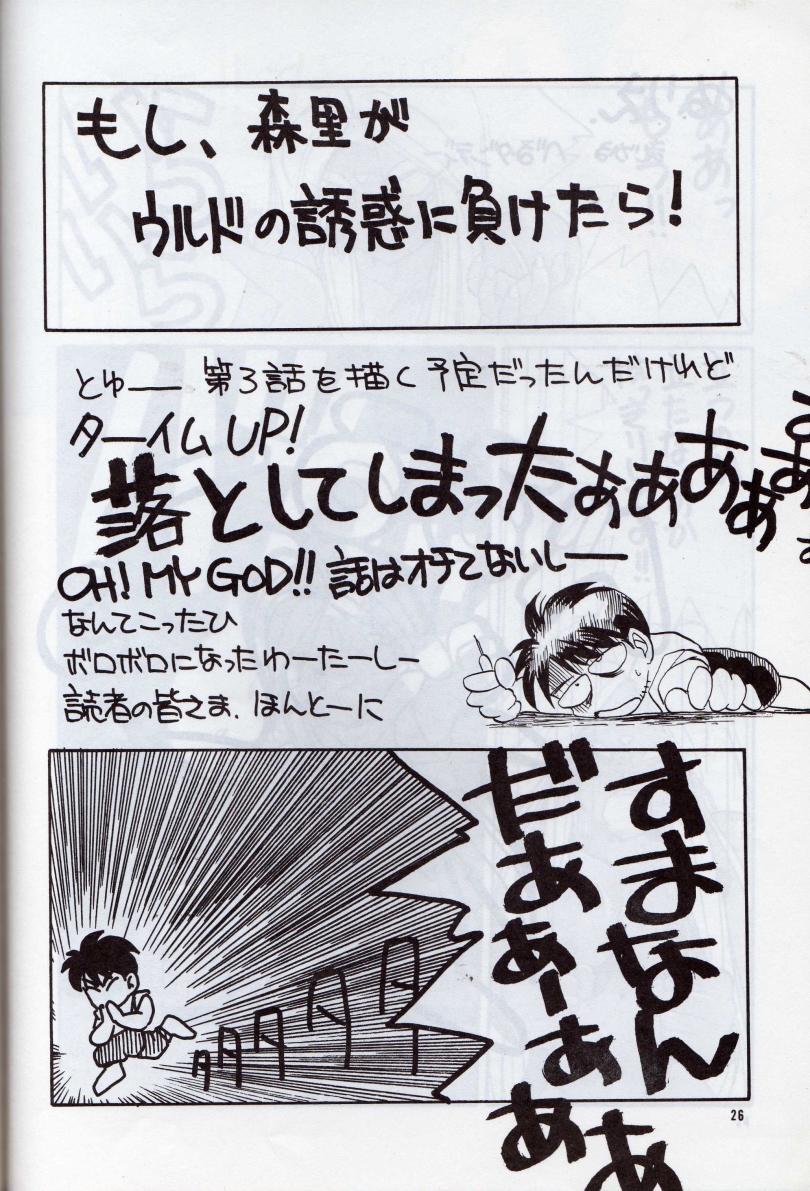 もし、森里が
ウルドの誘惑に負けたら!
とゆー 第3話を描く予定だったんだけれど
タームUP!
落としてしまったぁぁあぁぁ
OH! MY GOD!! 話はオチてないしー
なんてこったひ
ボロボロになったわーたーしー
読者の皆さま、ほんとーに
すまなん
だあぁーぁあぁ
ダダダダダ
26